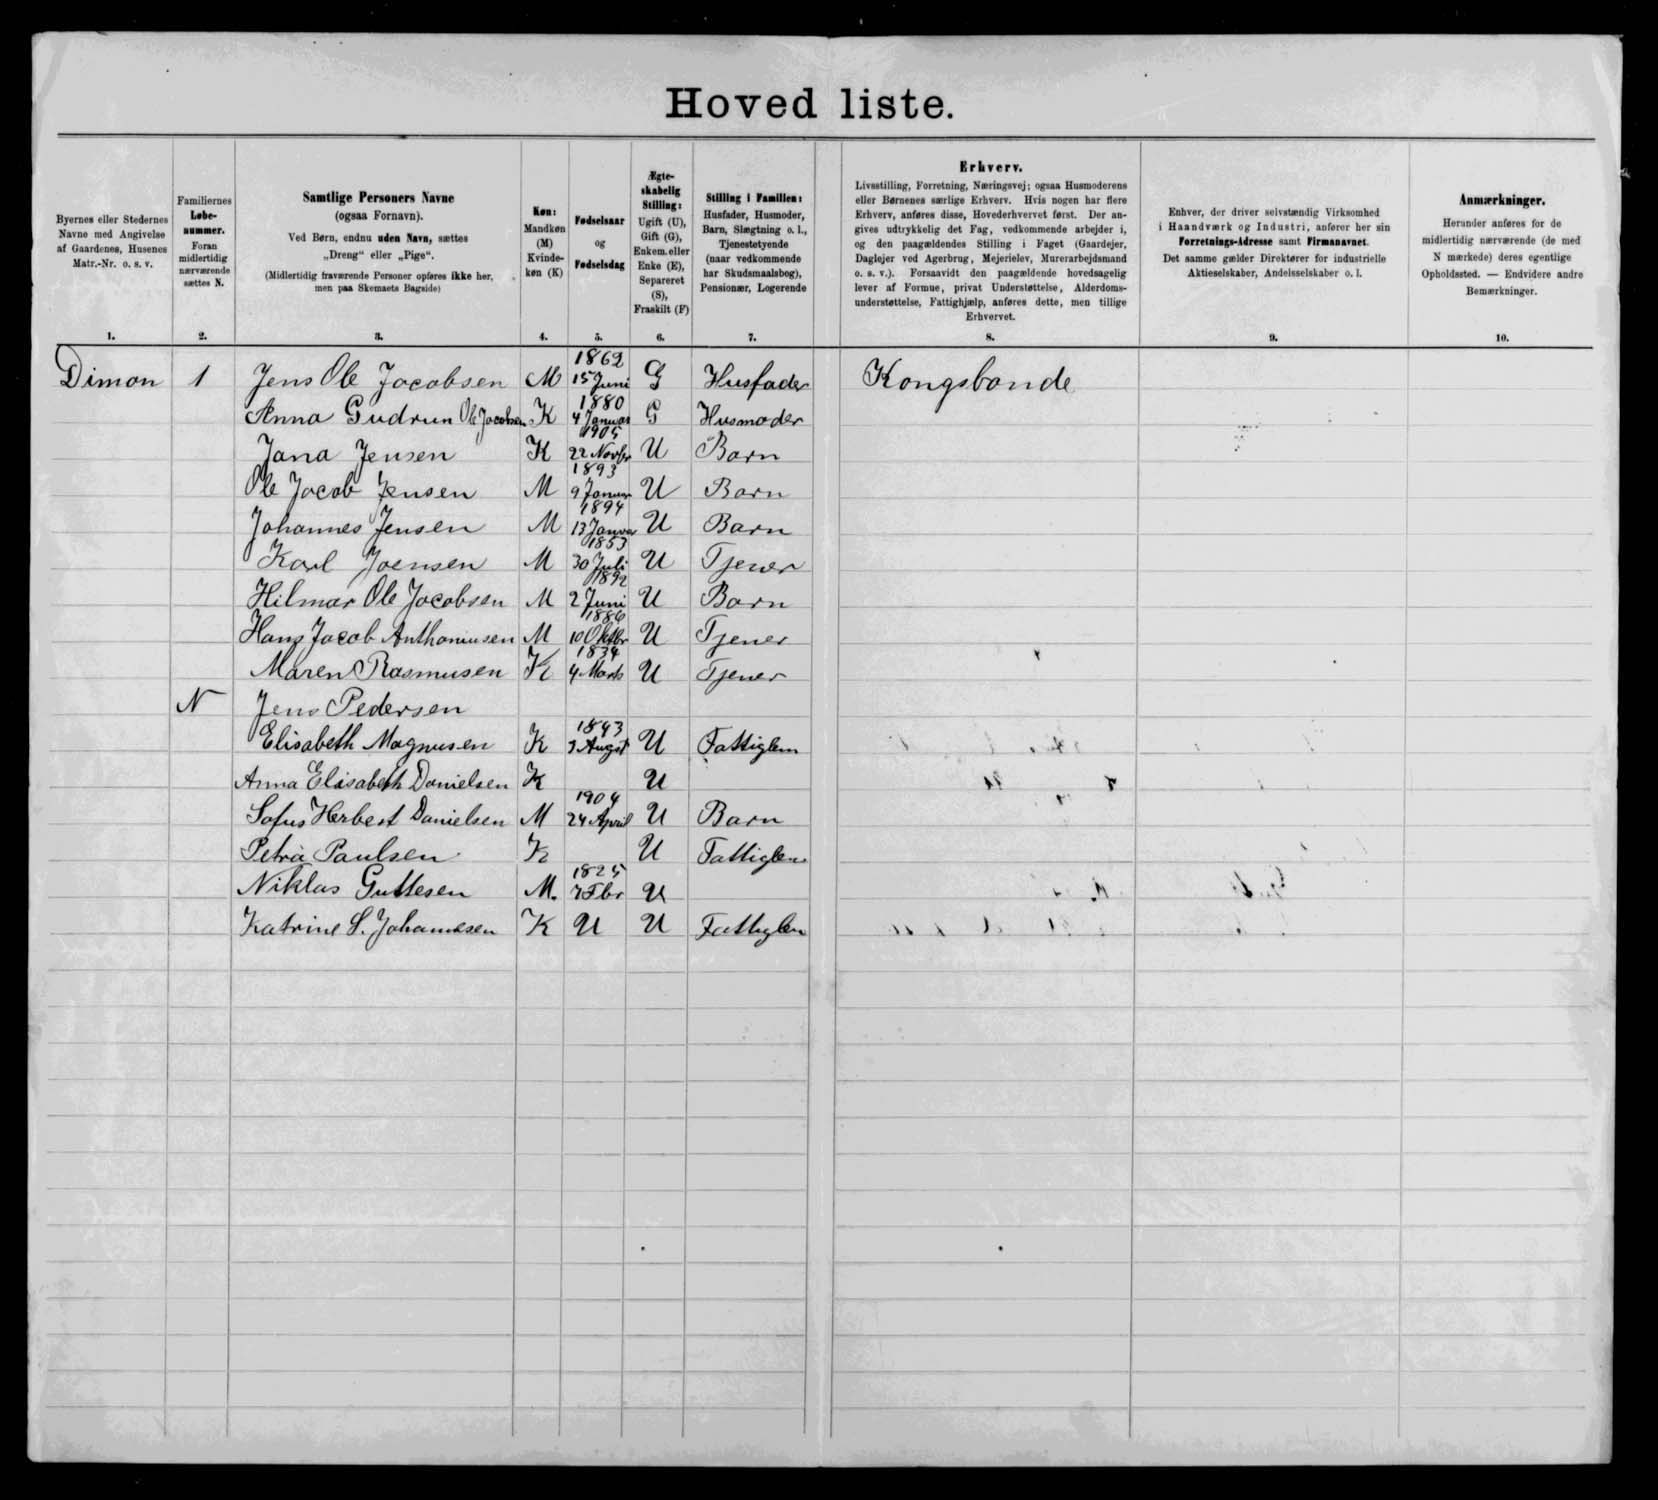 Hoved liste.
Byernes eller Stedernes
Navne med Angivelse
af Gaardenes, Husenes
Matr.-Nr. o. s. v.
1.
Familiernes
Løbe-
nummer.
Foran
midlertidig
nærværende
sættes N.
2.
Samtlige Personers Navne
(ogsaa Fornavn).
Ved Børn, endnu uden Navn, sættes
„Dreng“ eller „Pige“.
(Midlertidig fraværende Personer opføres ikke her,
men paa Skemaets Bagside)
3.
Køn:
Mandkøn
(M)
Kvinde-
køn (K)
4.
Fødselsaar
og
Fødselsdag
5.
Ægte-
skabelig
Stilling:
Ugift (U),
Gift (G),
Enkem. eller
Enke (E),
Separeret
(S),
Fraskilt (F)
6.
Stilling i Familien:
Husfader, Husmoder,
Barn, Slægtning o. l.,
Tjenestetyende
(naar vedkommende
har Skudsmaalsbog),
Pensionær, Logerende
7.
Erhverv.
Livsstilling, Forretning, Næringsvej; ogsaa Husmoderens
eller Børnenes særlige Erhverv. Hvis nogen har flere
Erhverv, anføres disse, Hovederhvervet først. Der an-
gives udtrykkelig det Fag, vedkommende arbejder i,
og den paagældendes Stilling i Faget (Gaardejer,
Daglejer ved Agerbrug, Mejerielev, Murerarbejdsmand
o. s. v.). Forsaavidt den paagældende hovedsagelig
lever af Formue, privat Understøttelse, Alderdoms-
understøttelse, Fattighjælp, anføres dette, men tillige
Erhvervet.
8.
Enhver, der driver selvstændig Virksomhed
i Haandværk og Industri, anfører her sin
Forretnings-Adresse samt Firmanavnet.
Det samme gælder Direktører for industrielle
Aktieselskaber, Andelsselskaber o. l.
9.
Anmærkninger.
Herunder anføres for de
midlertidig nærværende (de med
N mærkede) deres egentlige
Opholdssted. — Endvidere andre
Bemærkninger.
10.
Dimon 1 Jens Ole Jacobsen M 1862 15 Juni G Husfader Kongsbonde
Anna Gudrun Ole Jacobsen K 1880 4 Januar G Husmoder
Jana Jensen K 1905 22 Novbr U Barn
Ole Jacob Jensen M 1893 9 Januar U Barn
Johannes Jensen M 1894 13 Januar U Barn
Karl Joensen M 1853 30 Juli U Tjener
Hilmar Ole Jacobsen M 1892 2 Juni U Barn
Hans Jacob Anthoniusen M 1886 10 Oktbr U Tjener
Maren Rasmusen K 1834 4 Marts U Tjener
N Jens Pedersen
Elisabeth Magnusen K 1843 3 Augst U Fattiglem
Anna Elisabeth Danielsen K U
Sofus Herbert Danielsen M 1904 24 April U Barn
Petra Paulsen K U Fattiglem
Niklas Guttesen M. 1825 7 Fbr U
Katrine S. Johannesen K U U Fattiglem